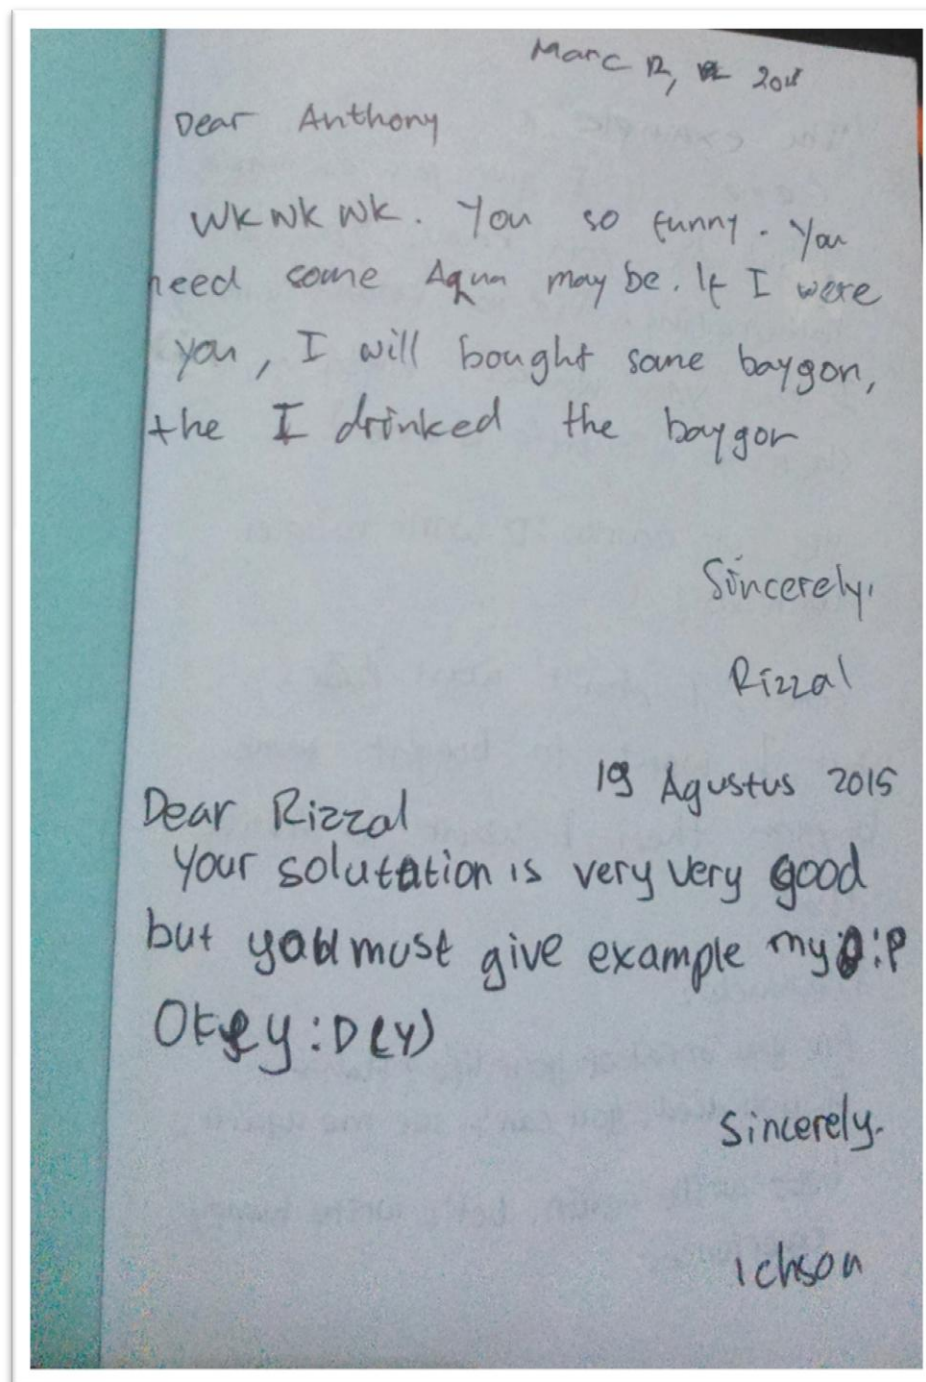 Marc 12, 2015
Dear Anthony
WKWKWK. You so funny. You
need some Aqua may be. If I were
you, I will bought some baygon,
the I drinked the baygon
Sincerely,
Rizzal
19 Agustus 2015
Dear Rizzal
Your solutation is very very good
but you must give example my :P
Okey :D (Y)
Sincerely.
Ichson